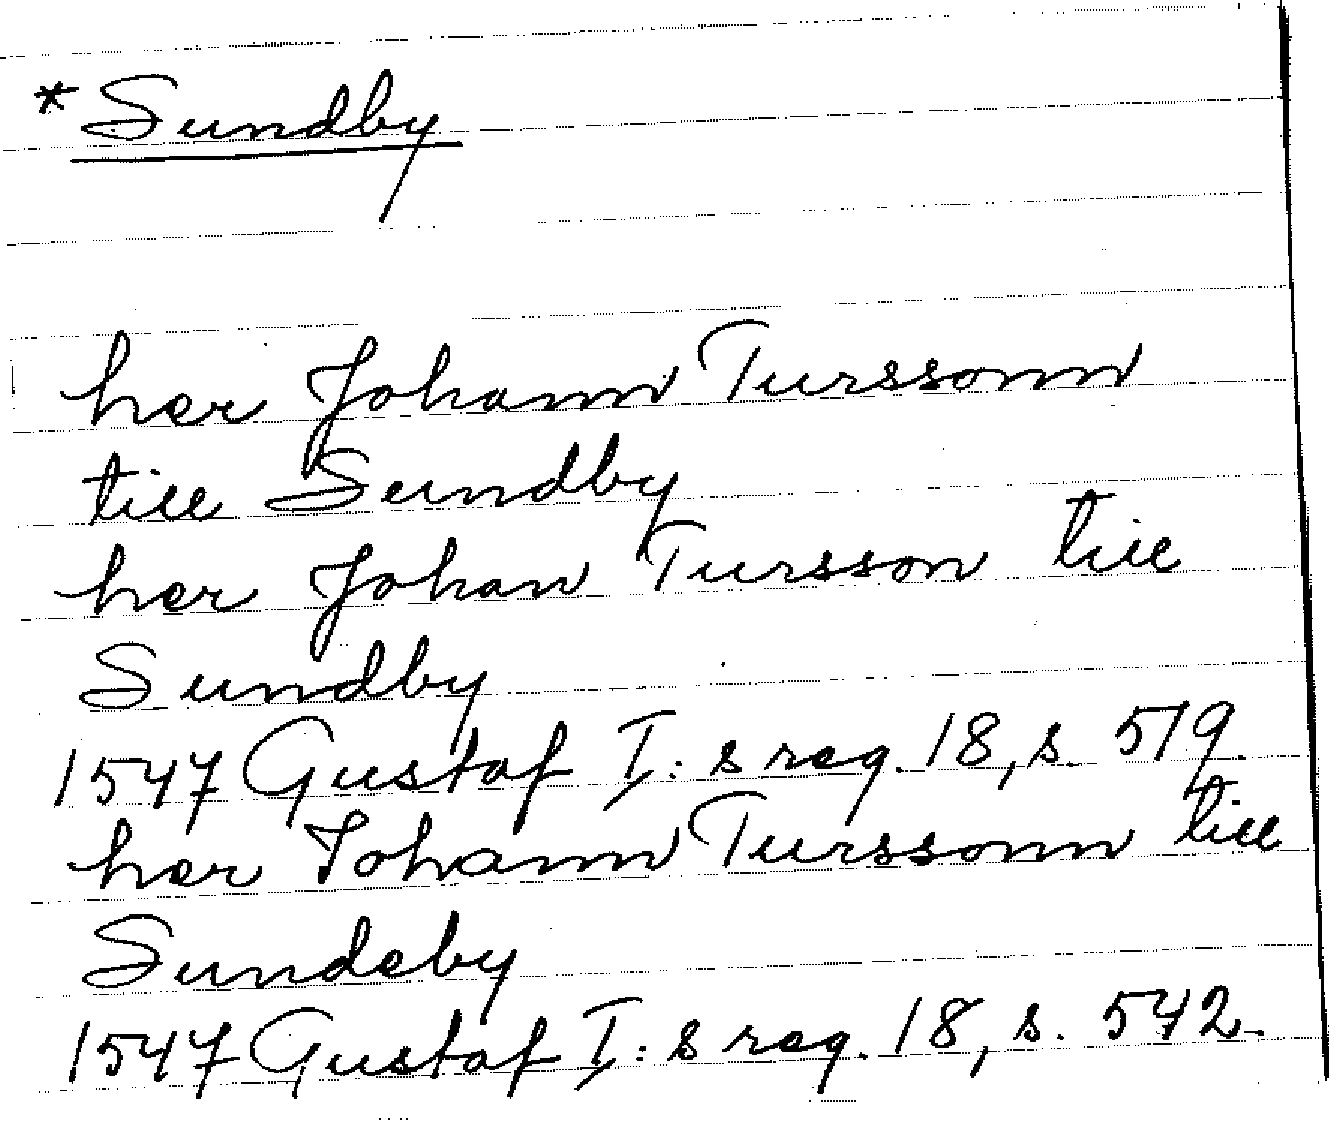 *Sundby
her Johann Turssonn
till Sundby
her Johan Tursson till
Sundby
1547 Gustaf I:s reg. 18, s. 519.
her Johann Turssonn till
Sundeby
1547 Gustaf I:s reg. 18, s. 542.